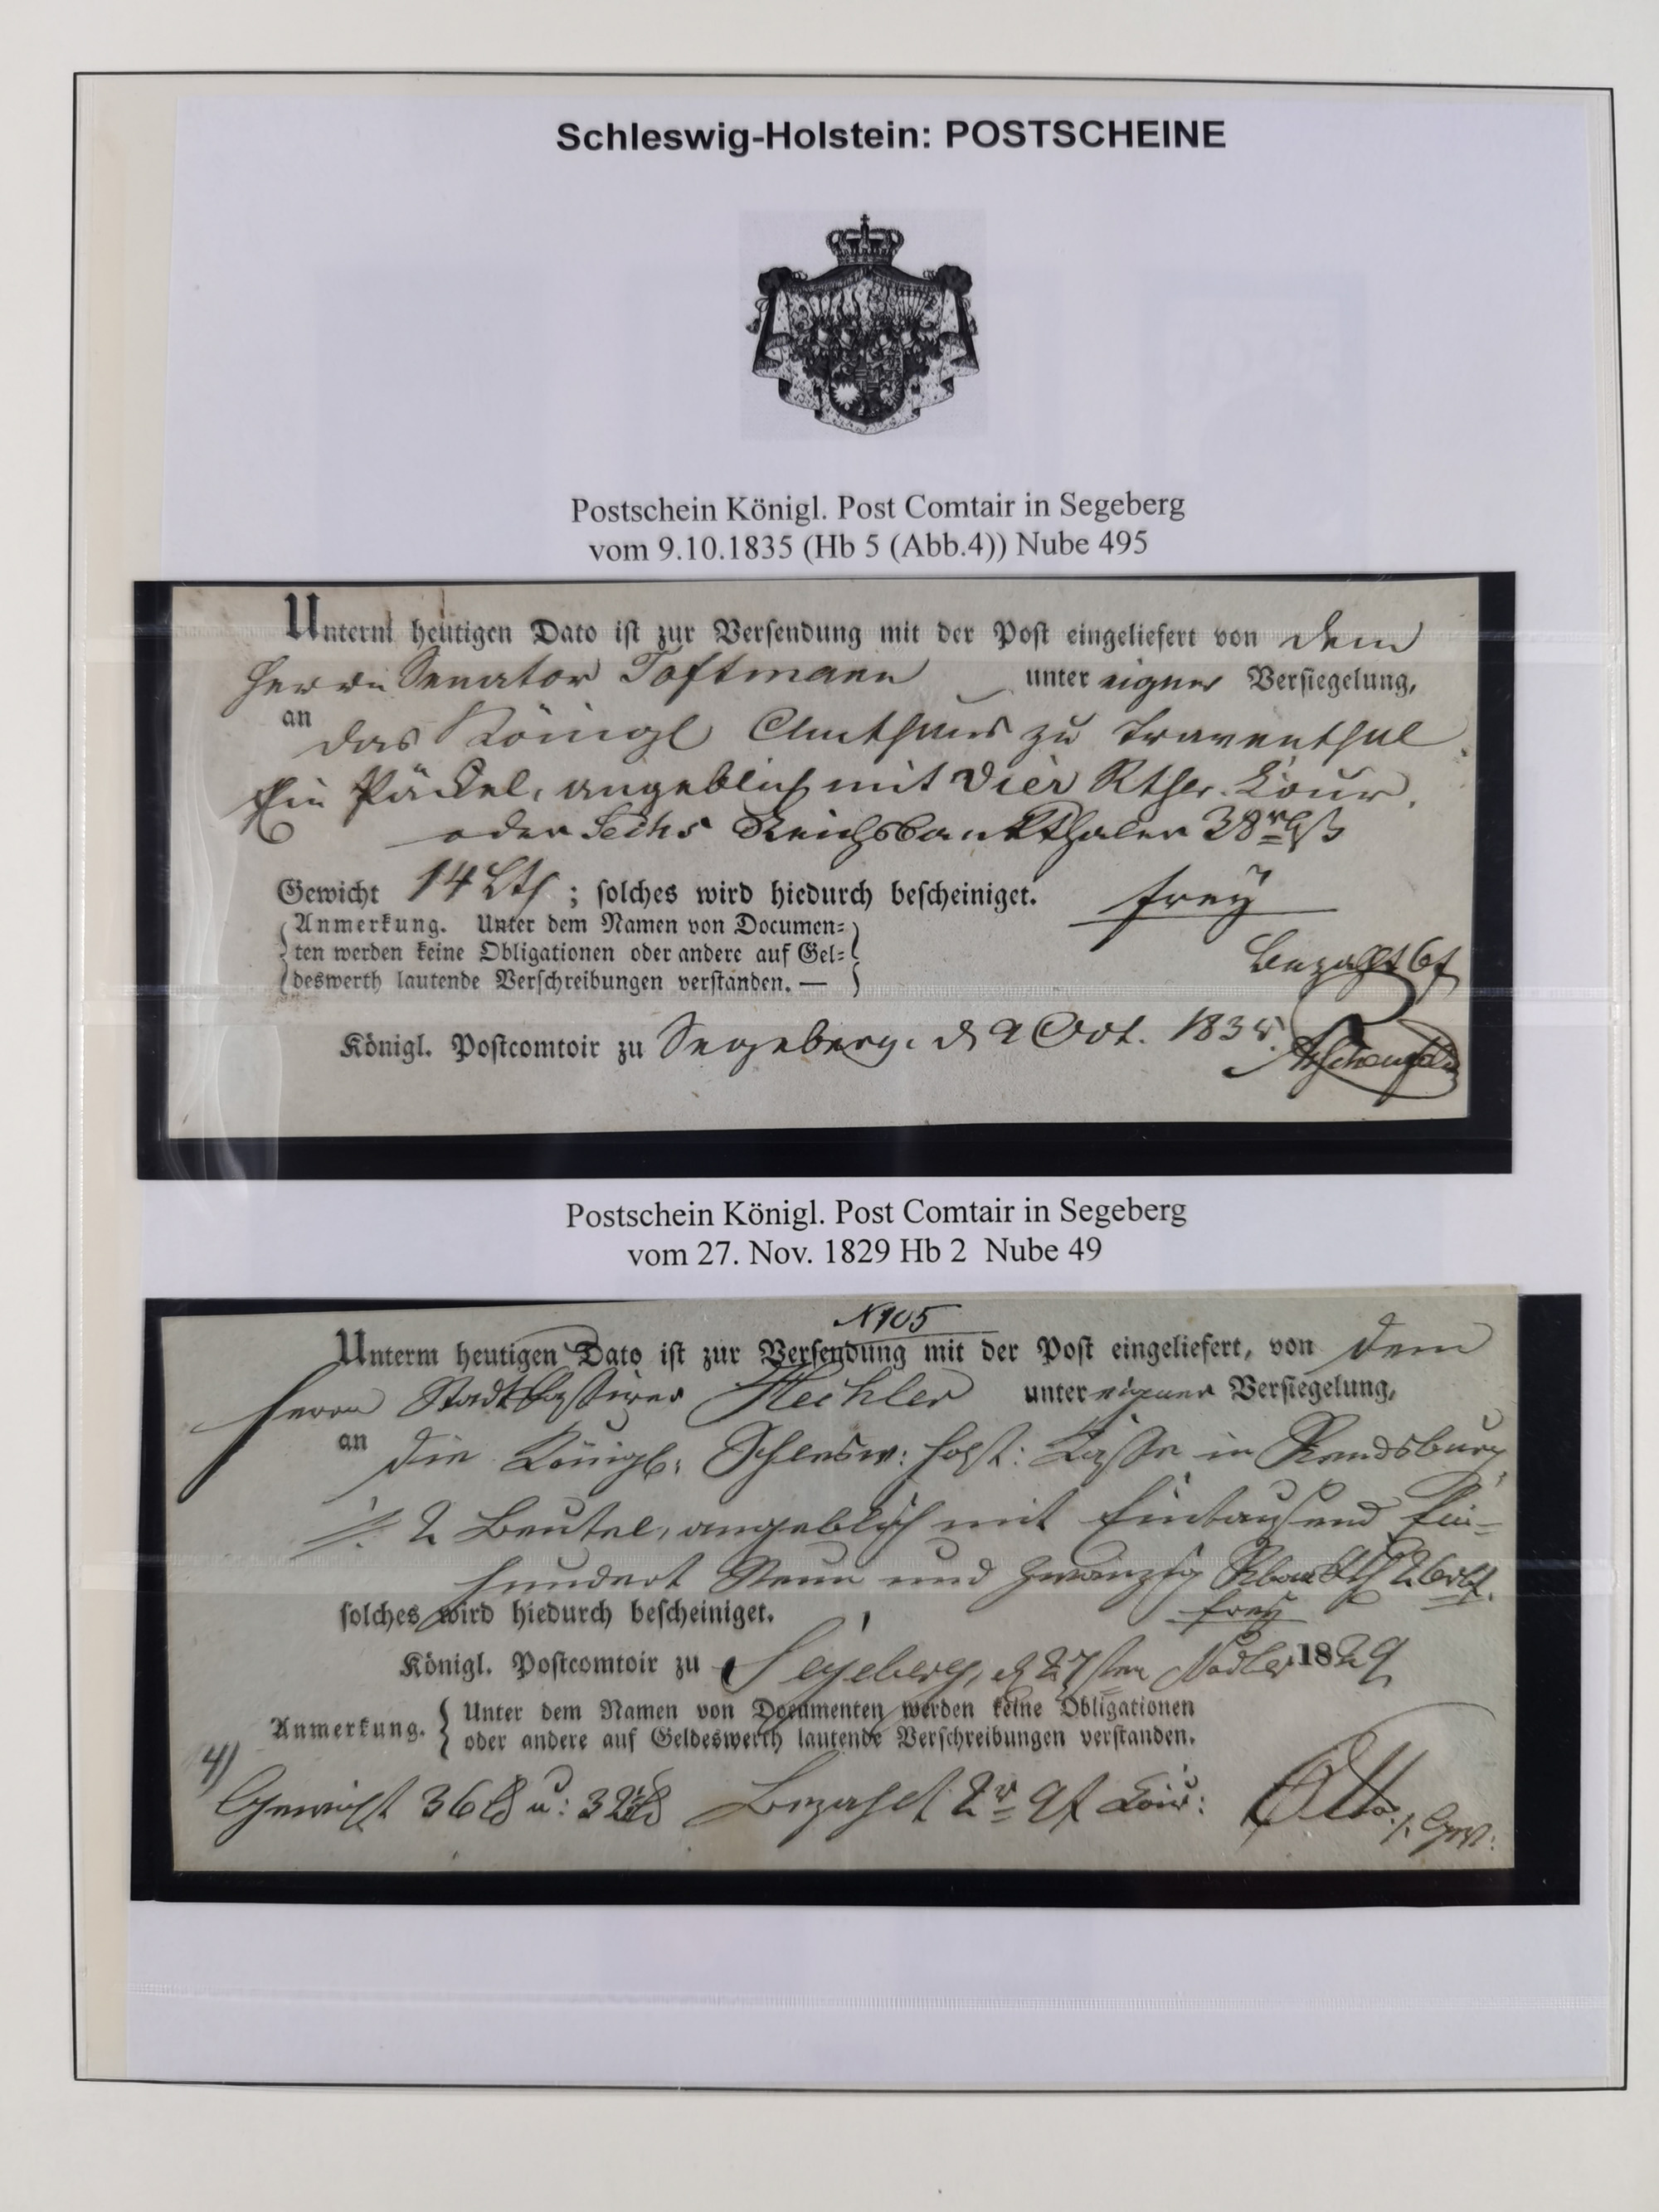 Schleswig-Holstein: POSTSCHEINE
Postschein Königl. Post Comtair in Segeberg
vom 9.10.1835 (Hb 5 (Abb.4)) Nube 495
Unterm heutigen Dato ist zur Versendung mit der Post eingeliefert von dem
Herrn Senator Toftmann unter eigner Versiegelung,
an
das Königl Amthaus zu Traventhal
Ein Päckel, angeblich mit Vier Rthlr. Cour.
oder Sechs Reichsbankthaler 38
Gewicht 14 Lth; solches wird hiedurch bescheiniget. frey
Anmerkung. Unter dem Namen von Documen-
ten werden keine Obligationen oder andere auf Gel-
deswerth lautende Verschreibungen verstanden. —
Bezahlt 6
Königl. Postcomtoir zu Segeberg. d 9 Oct. 1835.
Postschein Königl. Post Comtair in Segeberg
vom 27. Nov. 1829 Hb 2 Nube 49
N 105
Unterm heutigen Dato ist zur Versendung mit der Post eingeliefert, von dem
Herrn Stadtkassirer Mechler unter eigner Versiegelung,
an
die Königl: Schlesw: Holst: Casse in Rendsburg
2 Beutel, angeblich mit Eintausend Ein-
hundert Neun und Zwanzig
solches wird hiedurch bescheiniget. frey
Königl. Postcomtoir zu Segeberg, d 27sten Novbr 1829
Anmerkung. Unter dem Namen von Documenten werden keine Obligationen
oder andere auf Geldeswerth lautende Verschreibungen verstanden.
4)
Gewicht 36 u: 32 Bezahlt 2 9 Cour: